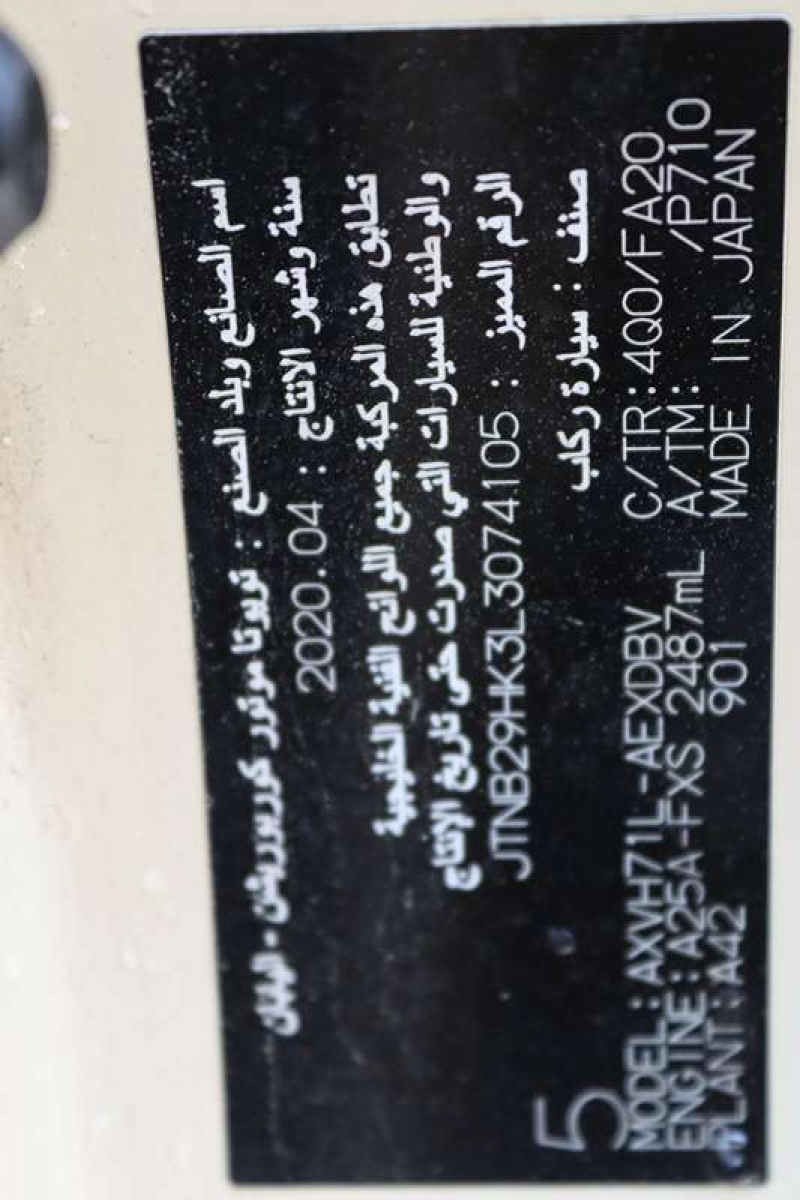 اسم الصانع وبلد الصنع : تويوتا موتور كوربوريشن - اليابان
سنة وشهر الانتاج : 2020.04
تطابق هذه المركبة جميع اللوائح الفنية الخليجية
والوطنية للسيارات التي صدرت حتى تاريخ الإنتاج
الرقم المميز : JTNB29HK3L3074105
صنف : سيارة ركاب
5
MODEL:AXVH71L-AEXDBV C/TR:4Q0/FA20
ENGINE:A25A-FXS 2487mL A/TM: /P710
PLANT:A42 901 MADE IN JAPAN